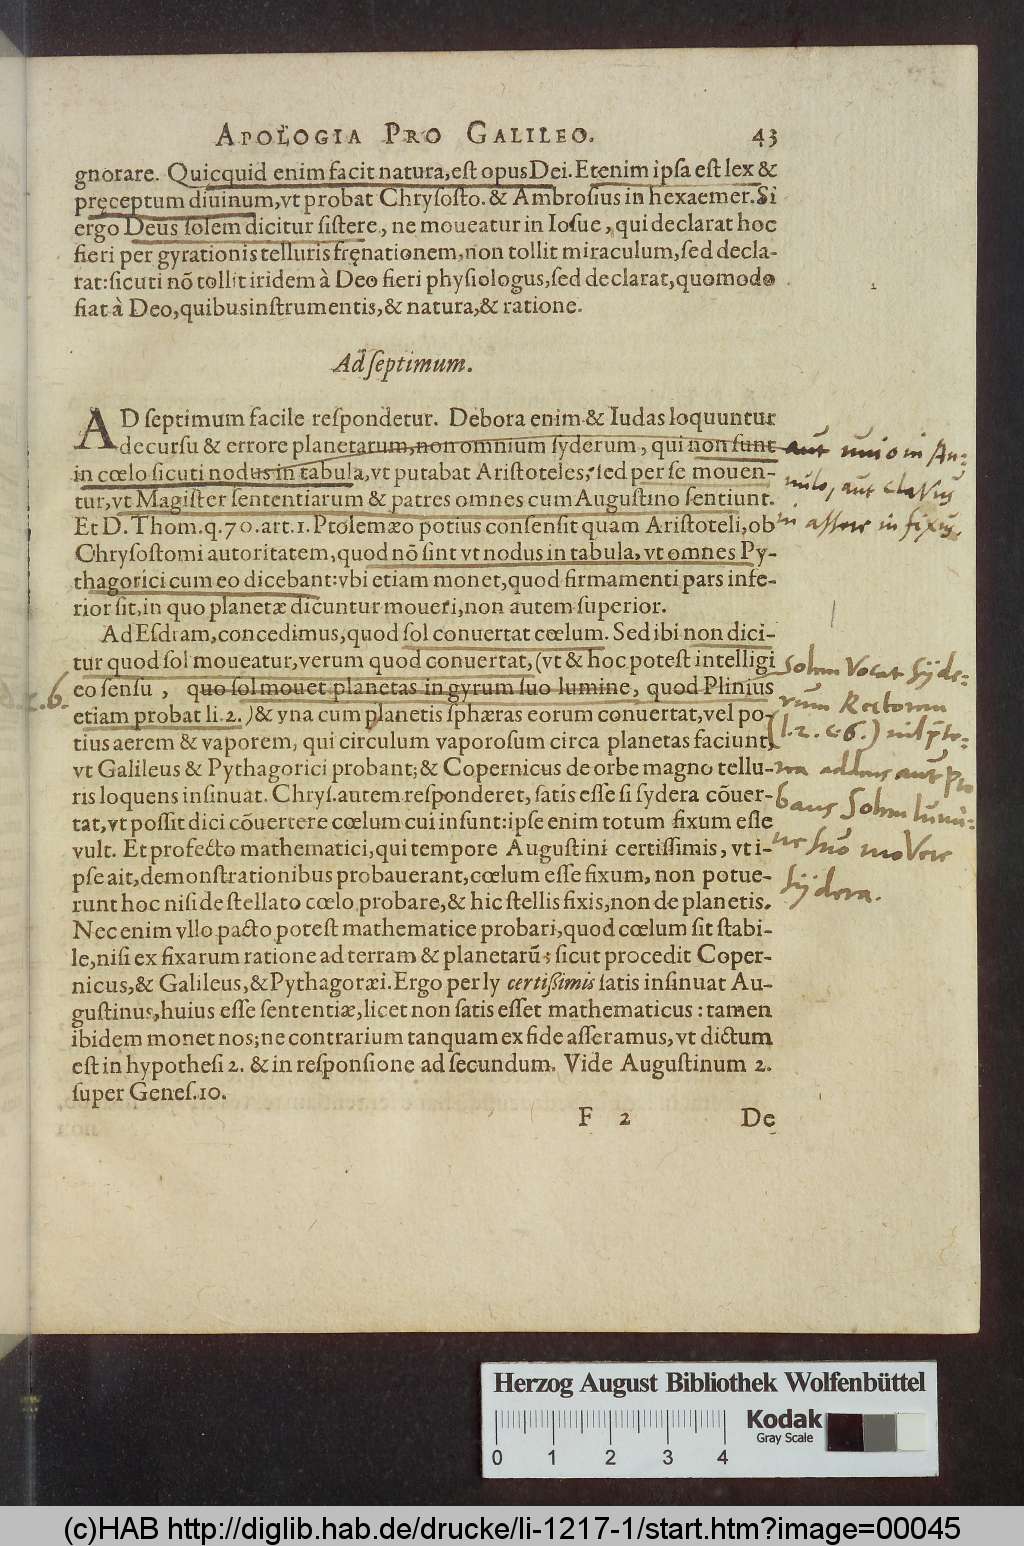 APOLOGIA PRO GALILEO. 43
gnorare. Quicquid enim facit natura, eſt opus Dei. Etenim ipſa eſt lex &
pręceptum diuinum, vt probat Chryſoſto. & Ambroſius in hexaemer. Si
ergo Deus ſolem dicitur ſiſtere, ne moueatur in Ioſue, qui declarat hoc
fieri per gyrationis telluris fręnationem, non tollit miraculum, ſed decla-
rat: ſicuti nõ tollit iridem à Deo fieri phyſiologus, ſed declarat, quomodo
fiat à Deo, quibus inſtrumentis, & natura, & ratione.
Ad ſeptimum.
AD ſeptimum facile reſpondetur. Debora enim & Iudas loquuntur
de curſu & errore planetarum, non omnium ſyderum, qui non ſunt
in cœlo ſicuti nodus in tabula, vt putabat Ariſtoteles, ſed per ſe mouen-
tur, vt Magiſter ſententiarum & patres omnes cum Auguſtino ſentiunt.
Et D. Thom. q. 70. art. 1. Ptolemæo potius conſenſit quam Ariſtoteli, ob
Chryſoſtomi autoritatem, quod nõ ſint vt nodus in tabula, vt omnes Py-
thagorici cum eo dicebant: vbi etiam monet, quod firmamenti pars infe-
rior ſit, in quo planetæ dicuntur moueri, non autem ſuperior.
Ad Eſdram, concedimus, quod ſol conuertat cœlum. Sed ibi non dici-
tur quod ſol moueatur, verum quod conuertat, (vt & hoc poteſt intelligi
eo ſenſu, quo ſol mouet planetas in gyrum ſuo lumine, quod Plinius
etiam probat li. 2.) & yna cum planetis ſphæras eorum conuertat, vel po-
tius aerem & vaporem, qui circulum vaporoſum circa planetas faciunt,
vt Galileus & Pythagorici probant; & Copernicus de orbe magno tellu-
ris loquens inſinuat. Chryſ. autem reſponderet, ſatis eſſe ſi ſydera cõuer-
tat, vt poſſit dici cõuertere cœlum cui inſunt: ipſe enim totum fixum eſſe
vult. Et profecto mathematici, qui tempore Auguſtini certiſſimis, vt i-
pſe ait, demonſtrationibus probauerant, cœlum eſſe fixum, non potue-
runt hoc niſi de ſtellato cœlo probare, & hic ſtellis fixis, non de planetis.
Nec enim vllo pacto poteſt mathematice probari, quod cœlum ſit ſtabi-
le, niſi ex fixarum ratione ad terram & planetarũ; ſicut procedit Coper-
nicus, & Galileus, & Pythagoræi. Ergo per ly certiſſimis ſatis inſinuat Au-
guſtinus, huius eſſe ſententiæ, licet non ſatis eſſet mathematicus: tamen
ibidem monet nos; ne contrarium tanquam ex fide aſſeramus, vt dictum
eſt in hypotheſi 2. & in reſponſione ad ſecundum. Vide Auguſtinum 2.
ſuper Geneſ. 10.
F 2 De
aut unio in An-
nulo, aut clavus
in assere in fixus
c. 6.
Solem Vocat Sÿde-
rum Rectorem
(l. 2. c. 6.)
aut Pro
bans Solem lumi-
ne suo movere
Sÿdera.
Herzog August Bibliothek Wolfenbüttel
Kodak
Gray Scale
0 1 2 3 4
(c)HAB http://diglib.hab.de/drucke/li-1217-1/start.htm?image=00045